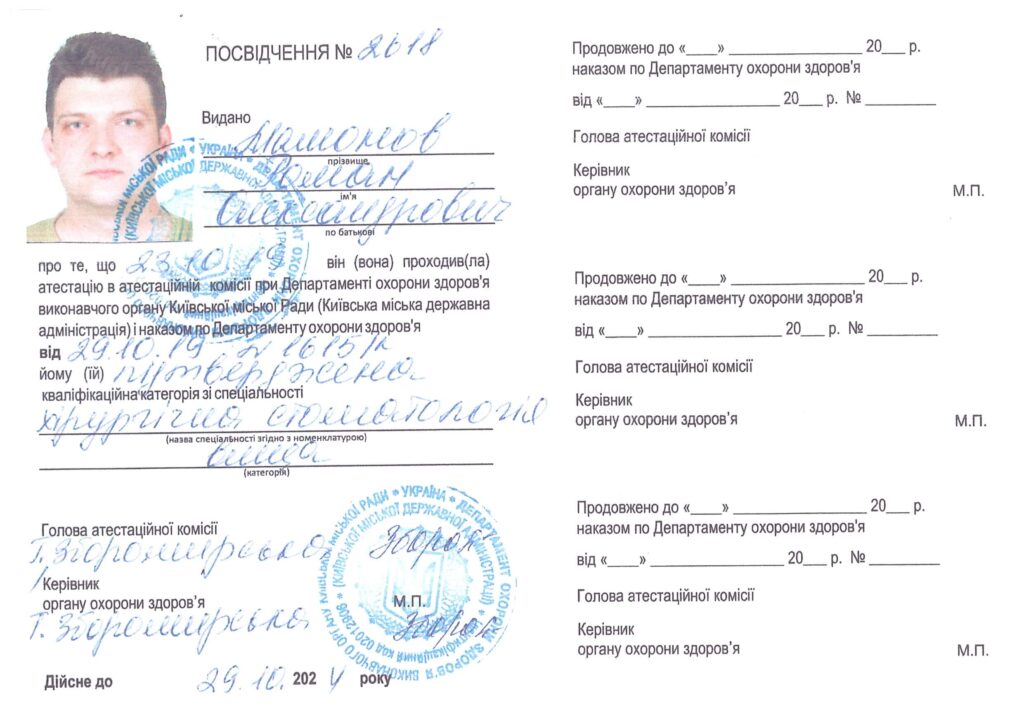 ПОСВІДЧЕННЯ № 2618
Видано
Мамонов
прізвище
Роман
ім'я
Олександрович
по батькові
про те, що 23.10.19 він (вона) проходив(ла)
атестацію в атестаційній комісії при Департаменті охорони здоров'я
виконавчого органу Київської міської Ради (Київська міська державна
адміністрація) і наказом по Департаменту охорони здоров'я
від 29.10.19 N 1615/к
йому (їй)
кваліфікаційна категорія зі спеціальності
хірургічна стоматологія
(назва спеціальності згідно з номенклатурою)
вища
(категорія)
Голова атестаційної комісії
Т. Зборомирська
Керівник
органу охорони здоров'я
М.П.
Т. Зборомирська
Дійсне до 29.10. 2024 року
Продовжено до «____» ________________ 20___ р.
наказом по Департаменту охорони здоров'я
від «____» ________________ 20___ р. № ________
Голова атестаційної комісії
Керівник
органу охорони здоров'я М.П.
Продовжено до «____» ________________ 20___ р.
наказом по Департаменту охорони здоров'я
від «____» ________________ 20___ р. № ________
Голова атестаційної комісії
Керівник
органу охорони здоров'я М.П.
Продовжено до «____» ________________ 20___ р.
наказом по Департаменту охорони здоров'я
від «____» ________________ 20___ р. № ________
Голова атестаційної комісії
Керівник
органу охорони здоров'я М.П.